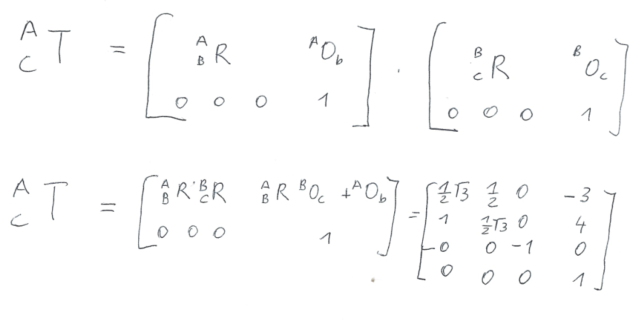 ^A_C T = [ ^A_B R  ^A O_b ; 0 0 0 1 ] · [ ^B_C R  ^B O_c ; 0 0 0 1 ]
^A_C T = [ ^A_B R · ^B_C R  ^A_B R ^B O_c + ^A O_b ; 0 0 0 1 ] = [ 1/2 √3  1/2  0  -3 ; 1  1/2 √3  0  4 ; -0  0  -1  0 ; 0  0  0  1 ]